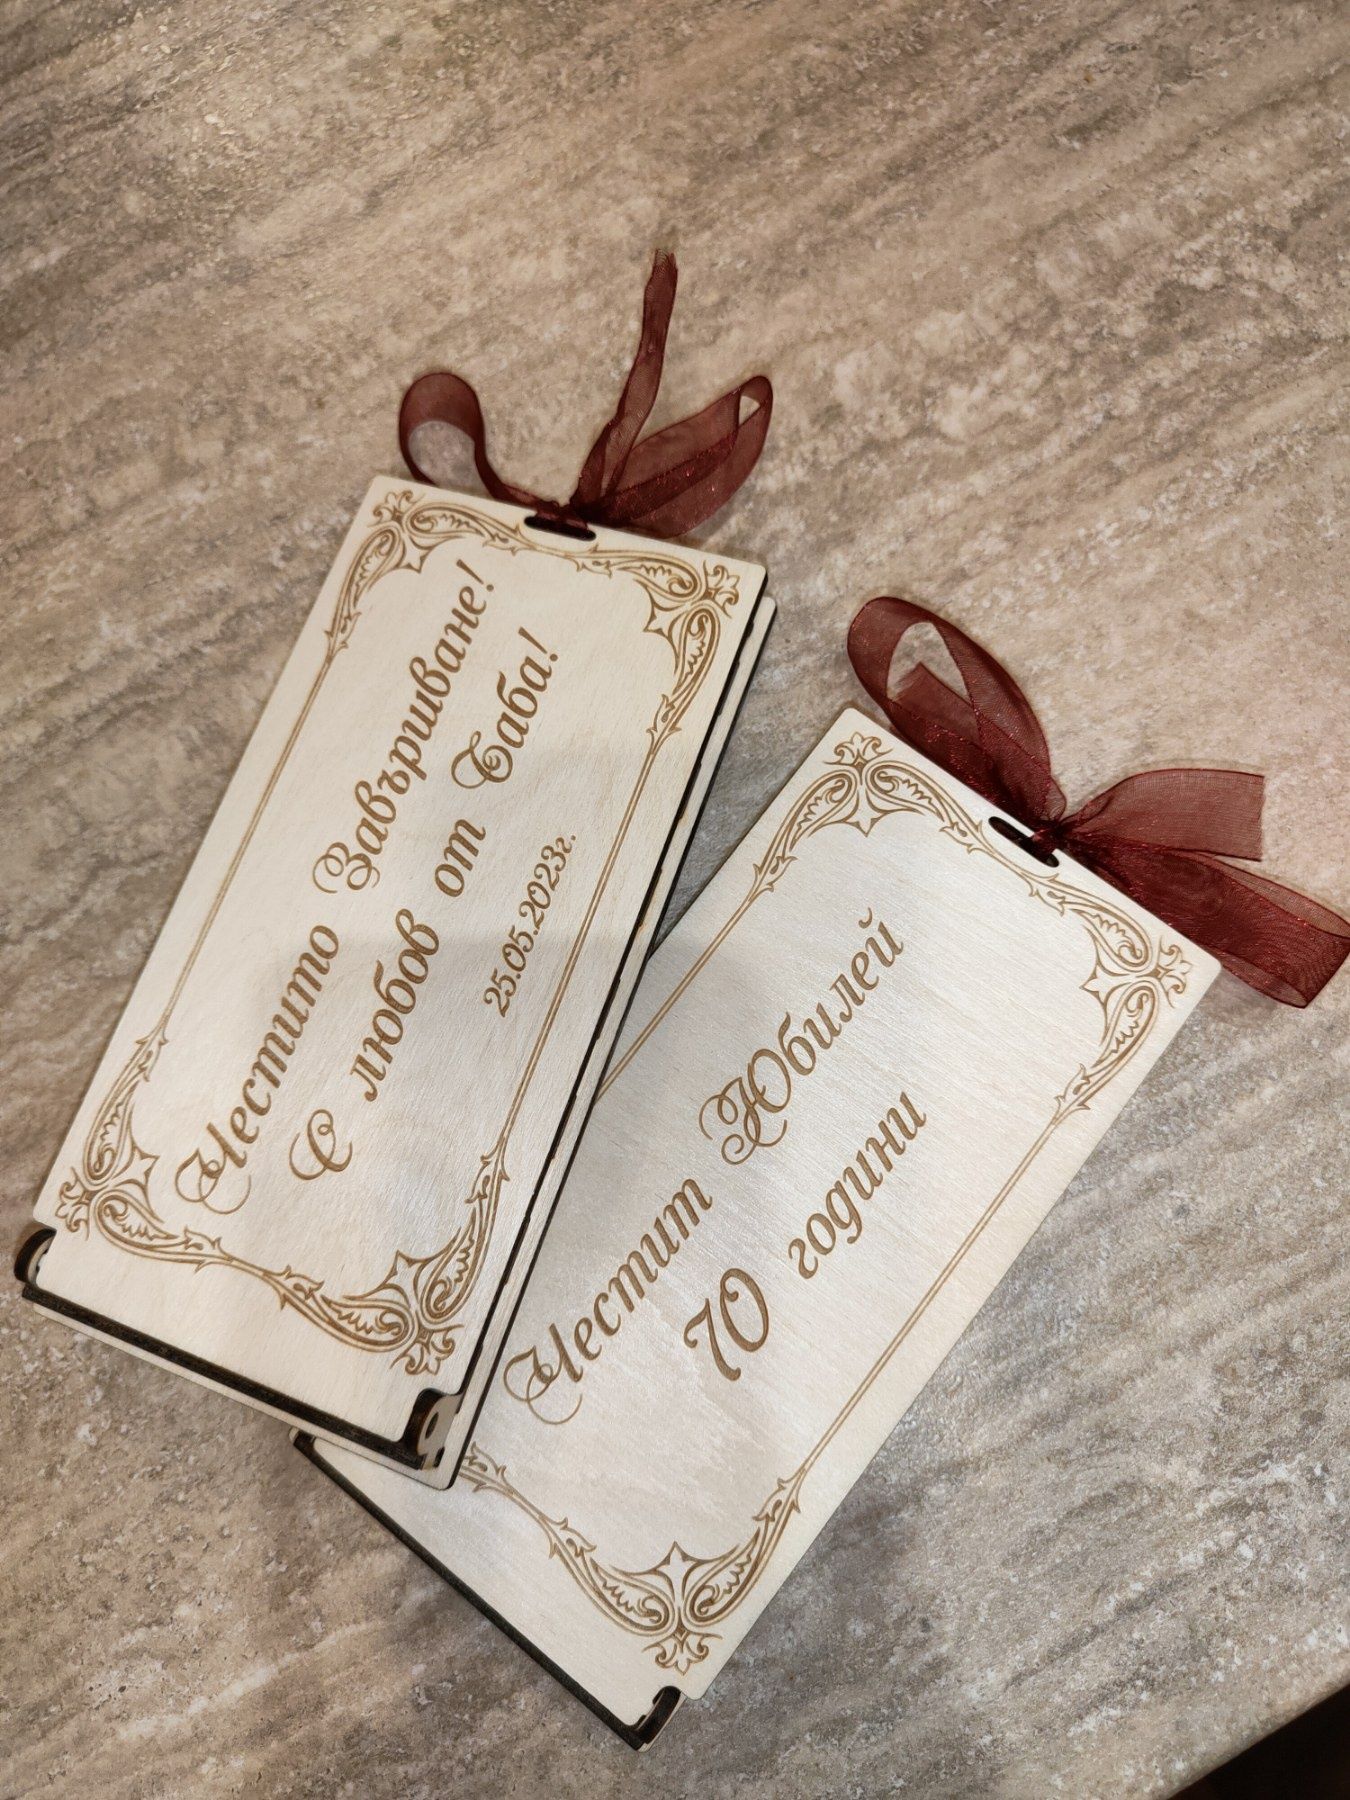 Честито Завършване!
С любов от Баба!
25.05.2023г.
Честит Юбилей
70 години